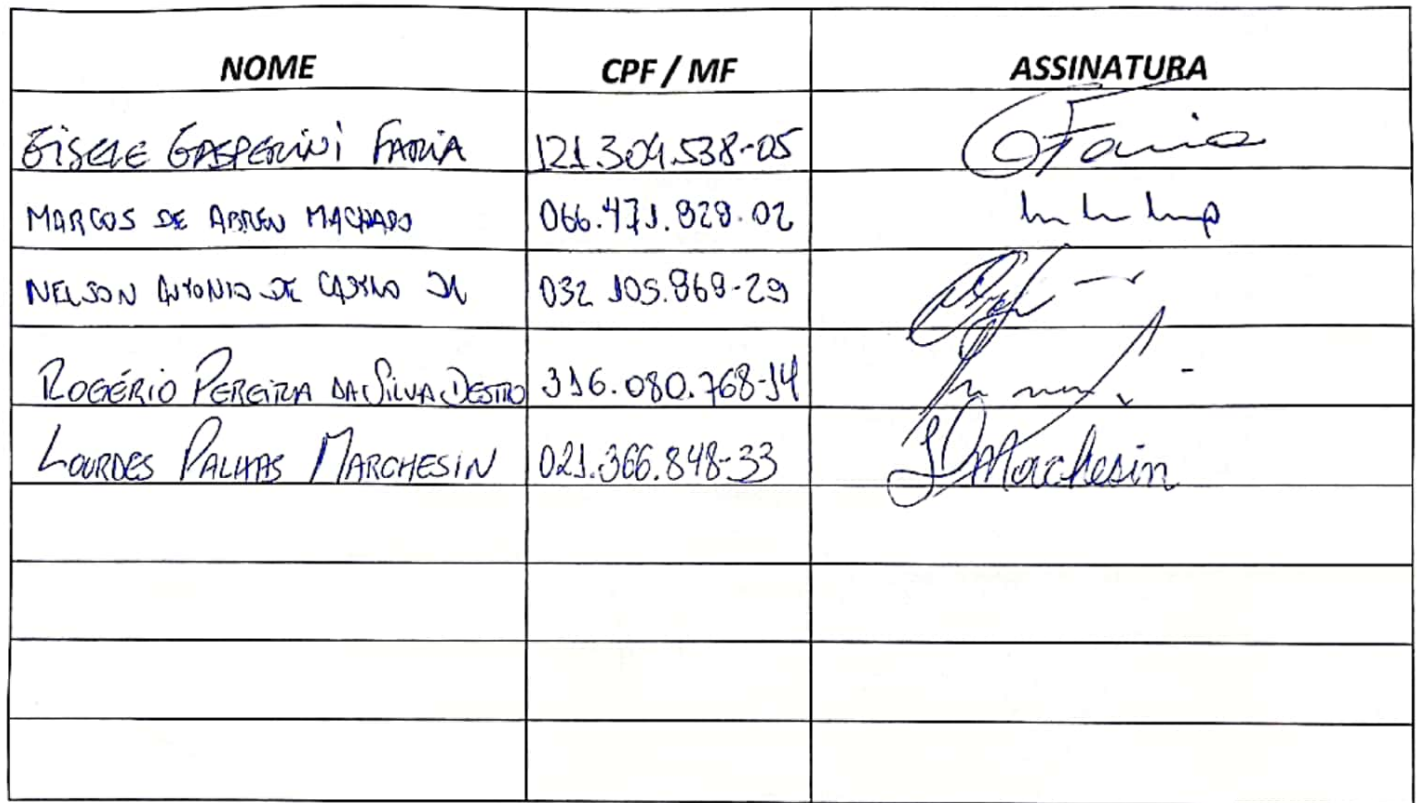 NOME CPF / MF ASSINATURA
GISELE GASPERINI FARIA 121.304.538-05 Faria
MARCOS DE ABREU MACHADO 066.471.929-02
NELSON ANTONIO DE CASTRO JR 032 105.969-29
ROGÉRIO PEREIRA DA SILVA DESTRO 316.080.768-14
LOURDES PALHAS MARCHESIN 021.366.848-33 LPMarchesin